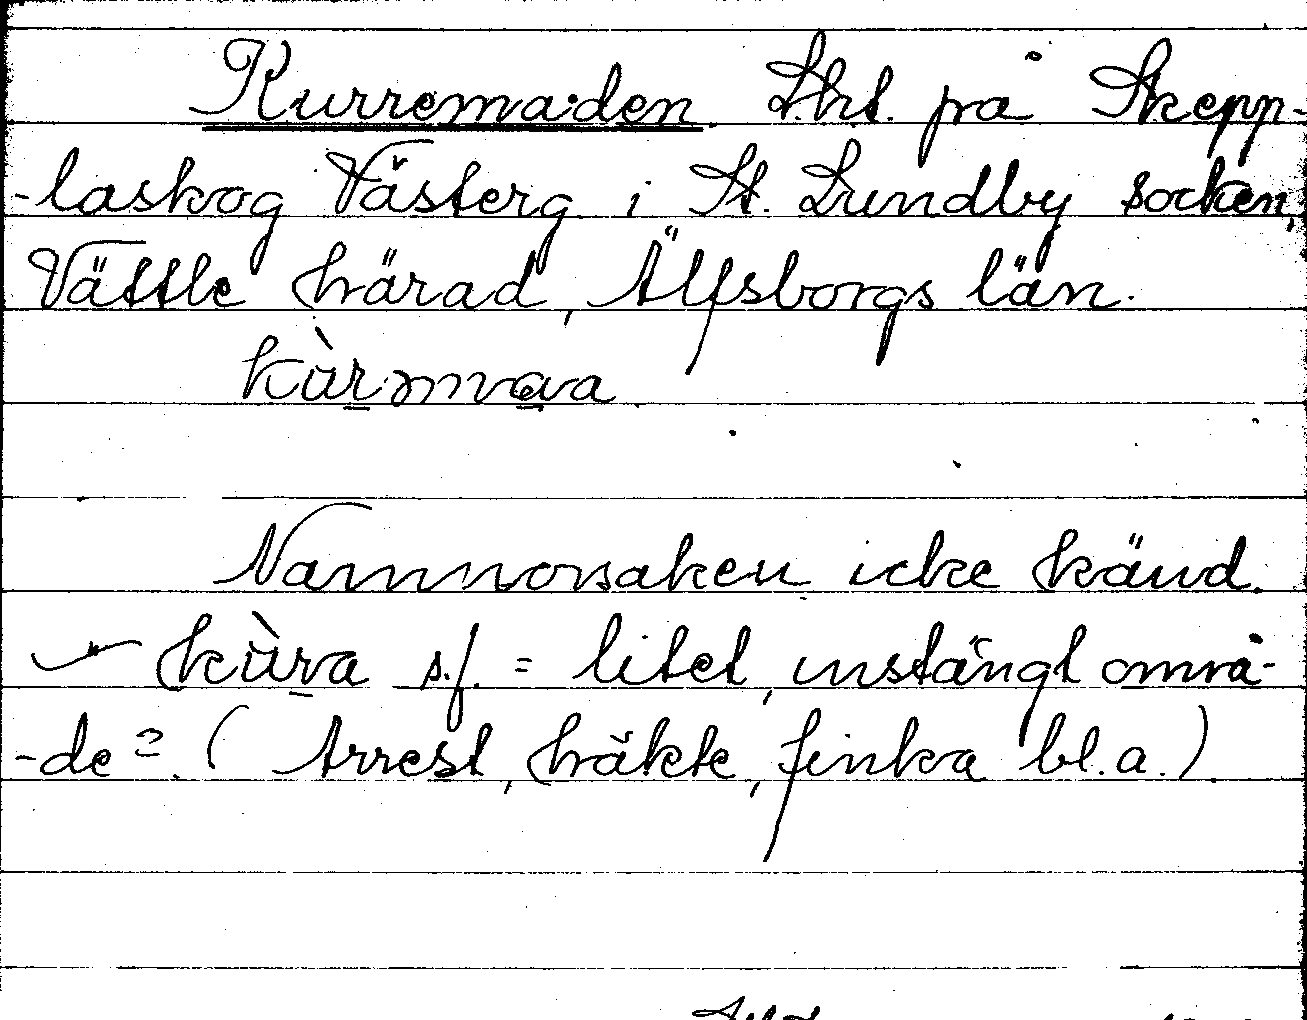 Kurremaden. Skt. på Skepp-
-laskog Västerg. i St. Lundby socken,
Vättle härad, Älfsborgs län.
Namnorsaken icke känd.
kùra s.f. = litet, instängt områ-
-de? (Arrest, häkte, finka bl.a.)